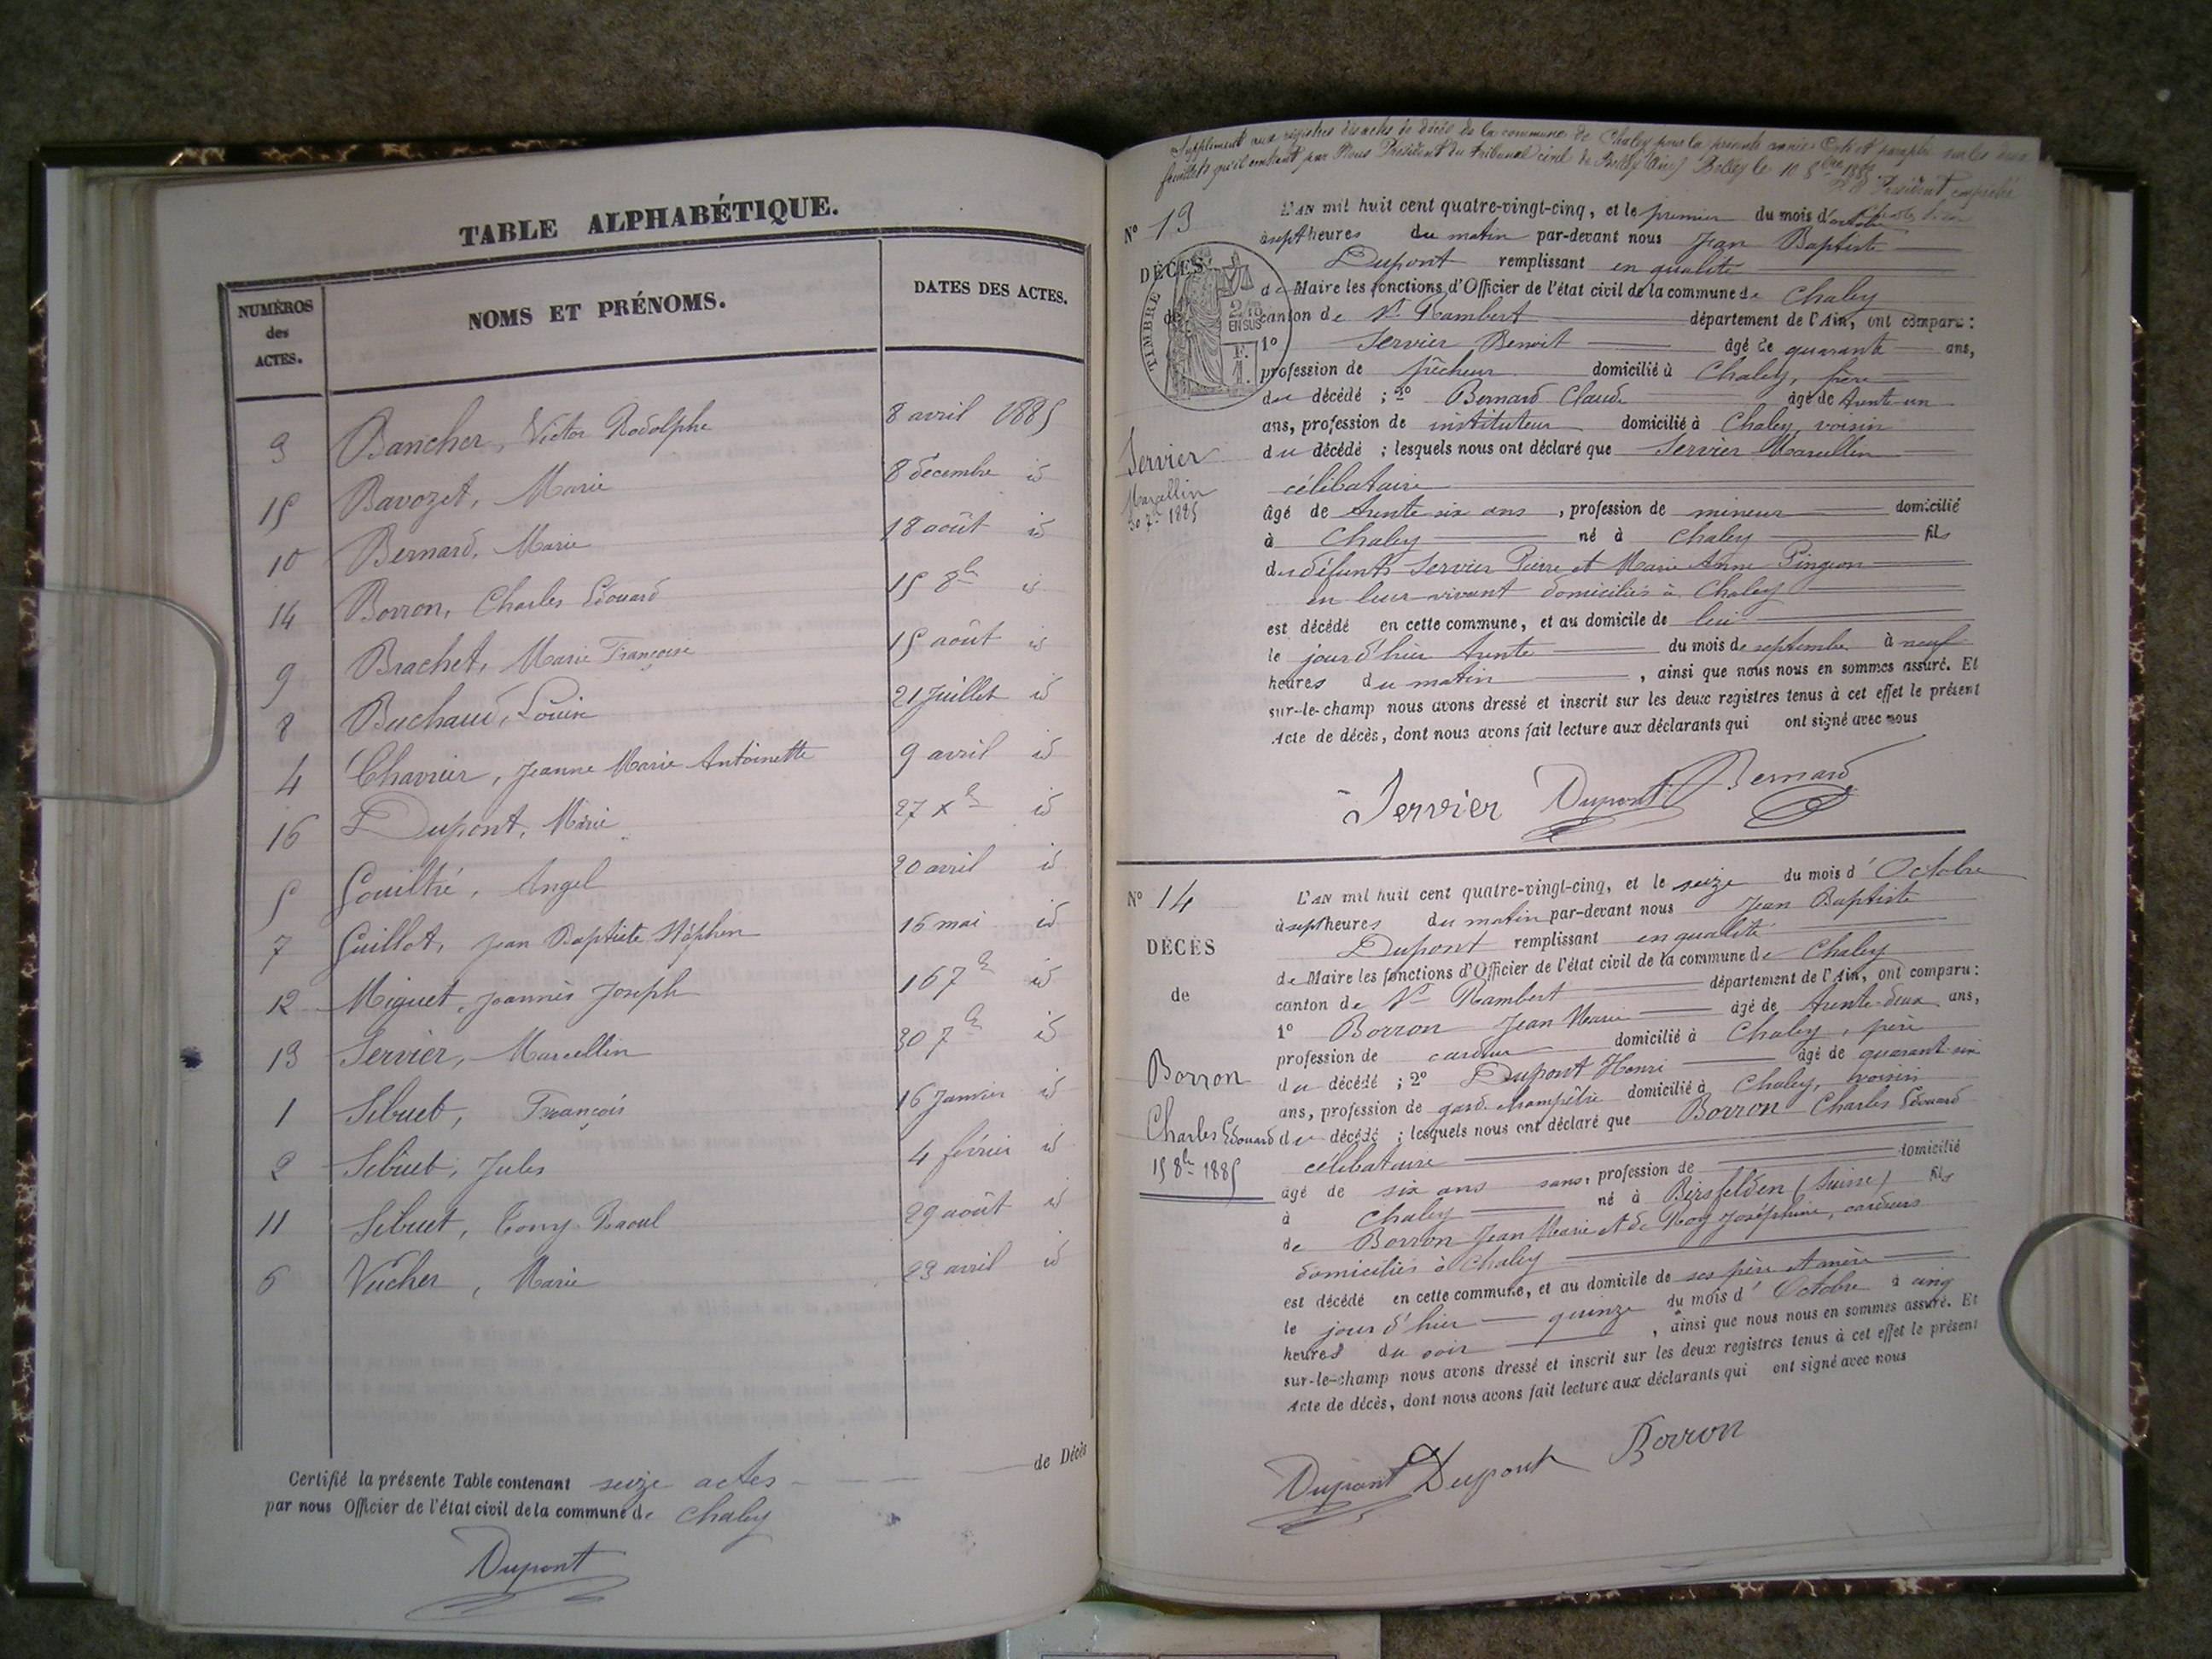 TABLE ALPHABÉTIQUE.
NUMÉROS des ACTES.
NOMS ET PRÉNOMS.
DATES DES ACTES.
3 Bancher, Victor Rodolphe 8 avril 1885
15 Bavozet, Marie 8 décembre id
10 Bernard, Marie 18 août id
14 Borron, Charles Edouard 15 8bre id
9 Brachet, Marie Françoise 15 août id
8 Buchaud, Louise 21 juillet id
4 Chavrier, Jeanne Marie Antoinette 9 avril id
16 Dupont, Marie 27 Xbre id
5 Gouiltré, Angel 20 avril id
7 Guillot, Jean Baptiste Stéphen 16 mai id
12 Miguet, Joannès Joseph 16 7bre id
13 Servier, Marcellin 30 7bre id
1 Sibuet, François 16 Janvier id
2 Sibuet, Jules 4 février id
11 Sibuet, Tony Raoul 29 août id
6 Vucher, Marie 23 avril id
Certifié la présente Table contenant seize actes de Décès
par nous Officier de l'état civil de la commune de Chaley
Dupont
Supplément aux registres des actes de décès de la commune de Chaley pour la présente année. Coté et paraphé sur les deux
feuillets qu'il contient par Nous Président du tribunal civil de Belley (Ain) Belley le 10 8bre 1885
Président empêché
N° 13
DÉCÈS
de
TIMBRE
2/10 EN SUS
F.
1.
Servier
Marcellin
30 7bre 1885
L'AN mil huit cent quatre-vingt-cinq, et le premier du mois d'octobre
à sept heures du matin par-devant nous Jean Baptiste
Dupont remplissant en qualité
de Maire les fonctions d'Officier de l'état civil de la commune de Chaley
canton de St Rambert département de l'Ain, ont comparu :
1° Servier Benoit âgé de quarante ans,
profession de pêcheur domicilié à Chaley, frère
du décédé ; 2° Bernard Claude âgé de trente-un
ans, profession de instituteur domicilié à Chaley, voisin
du décédé ; lesquels nous ont déclaré que Servier Marcellin
célibataire
âgé de trente six ans, profession de mineur domicilié
à Chaley né à Chaley fils
des défunts Servier Pierre et Marie Anne Pingeon
en leur vivant domiciliés à Chaley
est décédé en cette commune, et au domicile de lui
le jour d'hier trente du mois de septembre à neuf
heures du matin, ainsi que nous nous en sommes assuré. Et
sur-le-champ nous avons dressé et inscrit sur les deux registres tenus à cet effet le présent
Acte de décès, dont nous avons fait lecture aux déclarants qui ont signé avec nous
Servier Dupont Bernard
N° 14
DÉCÈS
de
Borron
Charles Edouard
15 8bre 1885
L'AN mil huit cent quatre-vingt-cinq, et le seize du mois d'Octobre
à sept heures du matin par-devant nous Jean Baptiste
Dupont remplissant en qualité
de Maire les fonctions d'Officier de l'état civil de la commune de Chaley
canton de St Rambert département de l'Ain, ont comparu :
1° Borron Jean Marie âgé de trente-deux ans,
profession de cardeur domicilié à Chaley, père
du décédé ; 2° Dupont Henri âgé de quarant-six
ans, profession de garde champêtre domicilié à Chaley, voisin
du décédé ; lesquels nous ont déclaré que Borron Charles Edouard
célibataire
âgé de six ans sans, profession de domicilié
à Chaley né à Birsfelden (Suisse) fils
de Borron Jean Marie et de Roy Joséphine, cardeurs
domiciliés à Chaley
est décédé en cette commune, et au domicile de ses père et mère
le jour d'hier quinze du mois d'Octobre à cinq
heures du soir, ainsi que nous nous en sommes assuré. Et
sur-le-champ nous avons dressé et inscrit sur les deux registres tenus à cet effet le présent
Acte de décès, dont nous avons fait lecture aux déclarants qui ont signé avec nous
Dupont Dupont Borron